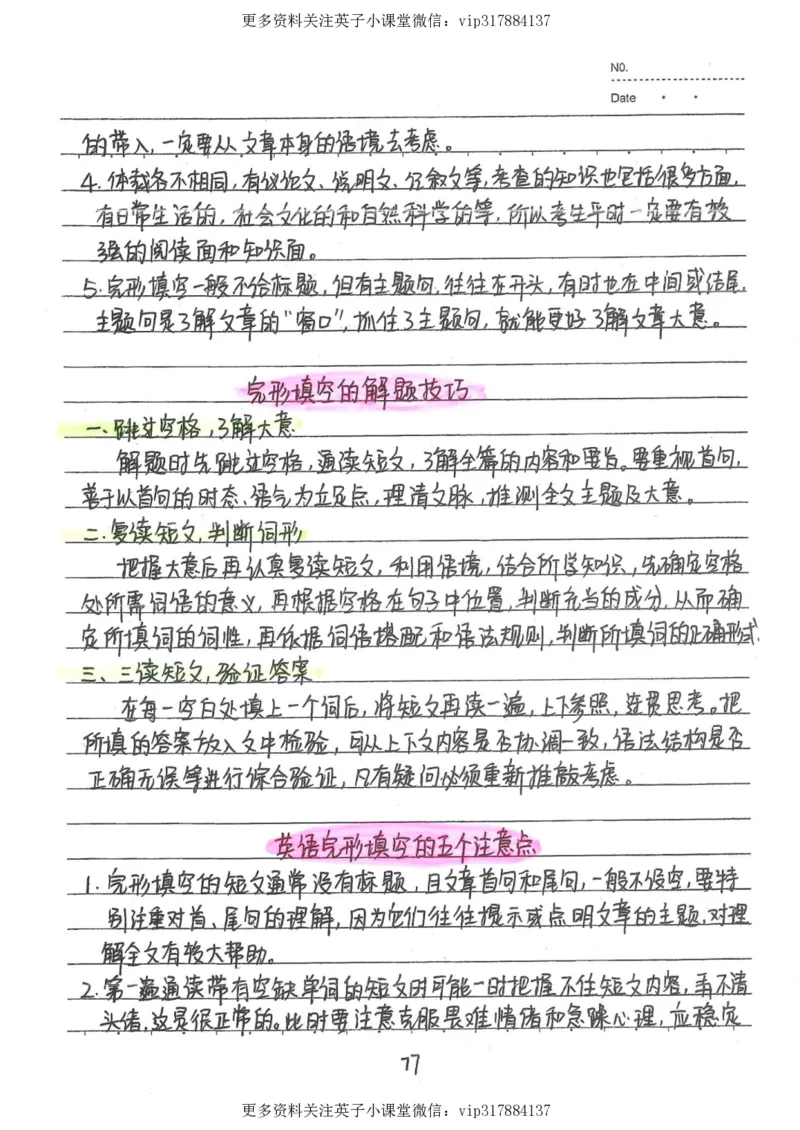 更多资料关注英子小课堂微信：vip317884137
NO.
Date
的带入，一定要从文章本身的语境去考虑。
4.体裁各不相同，有议论文、说明文、记叙文等，考查的知识也包括很多方面，
有日常生活的，社会文化的和自然科学的等，所以考生平时一定要有较
强的阅读面和知识面。
5.完形填空一般不给标题，但有主题句，往往在开头，有时也在中间或结尾，
主题句是了解文章的“窗口”，抓住了主题句，就能更好了解文章大意。
完形填空的解题技巧
一、跳过空格，了解大意
解题时先跳过空格，通读短文，了解全篇的内容和要旨。要重视首句，
善于以首句的时态、语气为立足点，理清文脉，推测全文主题及大意。
二.复读短文，判断词形
把握大意后再认真复读短文，利用语境，结合所学知识，先确定空格
处所需词语的意义，再根据空格在句子中位置，判断充当的成分，从而确
定所填词的词性，再依据词语搭配和语法规则，判断所填词的正确形式.
三、三读短文，验证答案
在每一空白处填上一个词后，将短文再读一遍，上下参照、连贯思考。把
所填的答案放入文中检验，可从上下文内容是否协调一致，语法结构是否
正确无误等进行综合验证，凡有疑问必须重新推敲考虑。
英语完形填空的五个注意点
1.完形填空的短文通常没有标题，且文章首句和尾句，一般不设空，要特
别注重对首、尾句的理解，因为它们往往提示或点明文章的主题，对理
解全文有较大帮助。
2.第一遍通读带有空缺单词的短文时可能一时把握不住短文内容，弄不清
头绪，这是很正常的。此时要注意克服畏难情绪和急躁心理，应稳定
77
更多资料关注英子小课堂微信：vip317884137